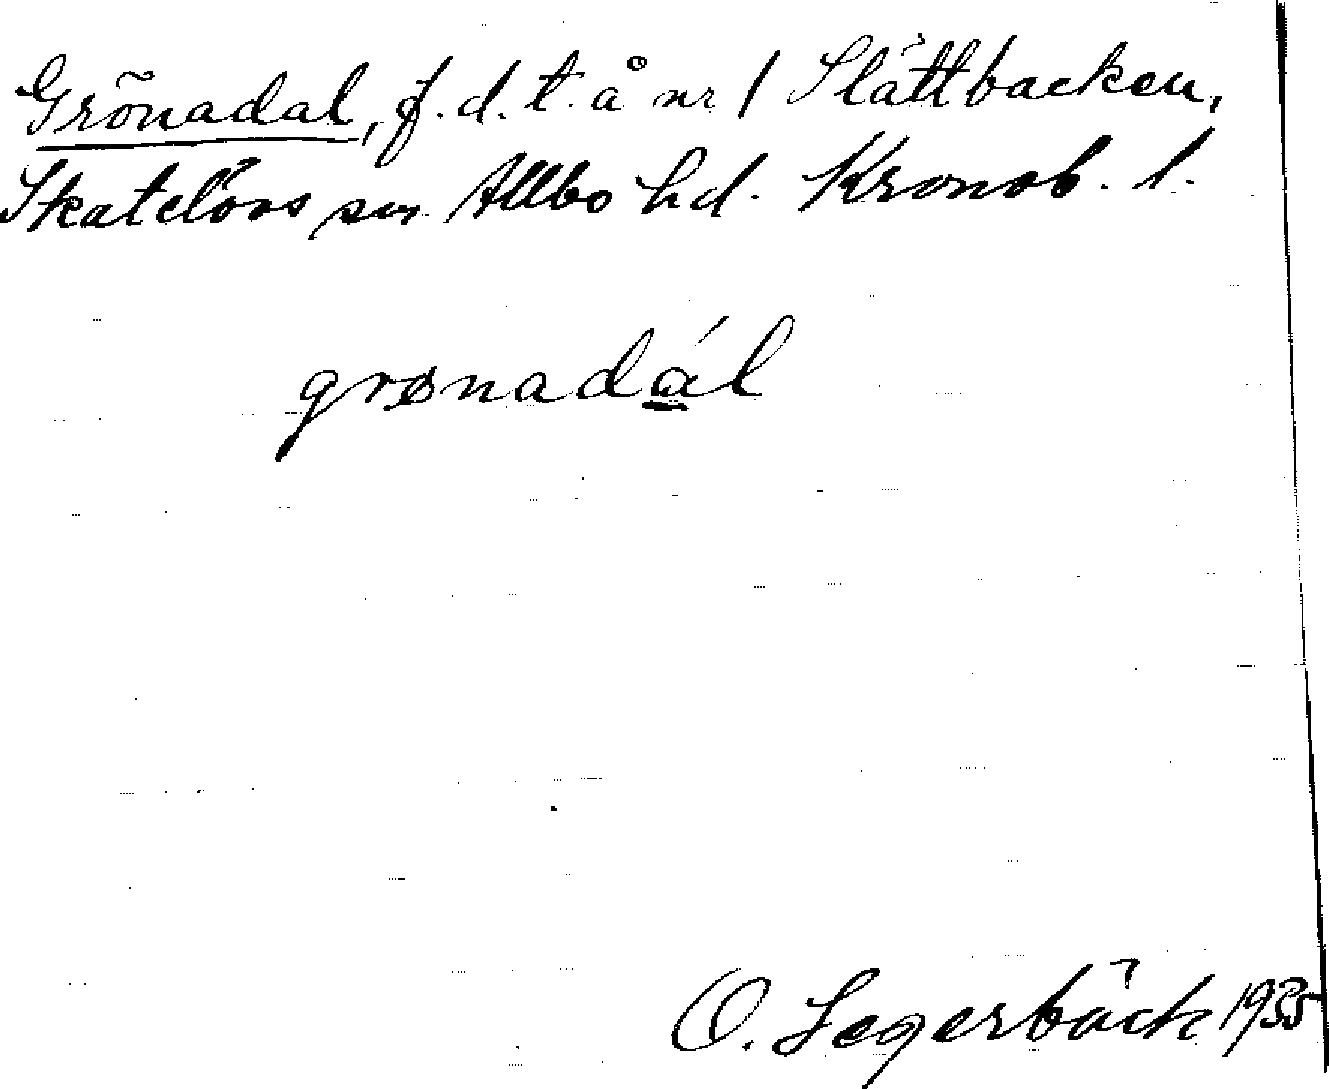 Grönadal, f.d.t. å nr 1 Slättbacken,
Skatelövs sn Allbo hd. Kronob. l.
grønadál
O. Segerbäck 1935